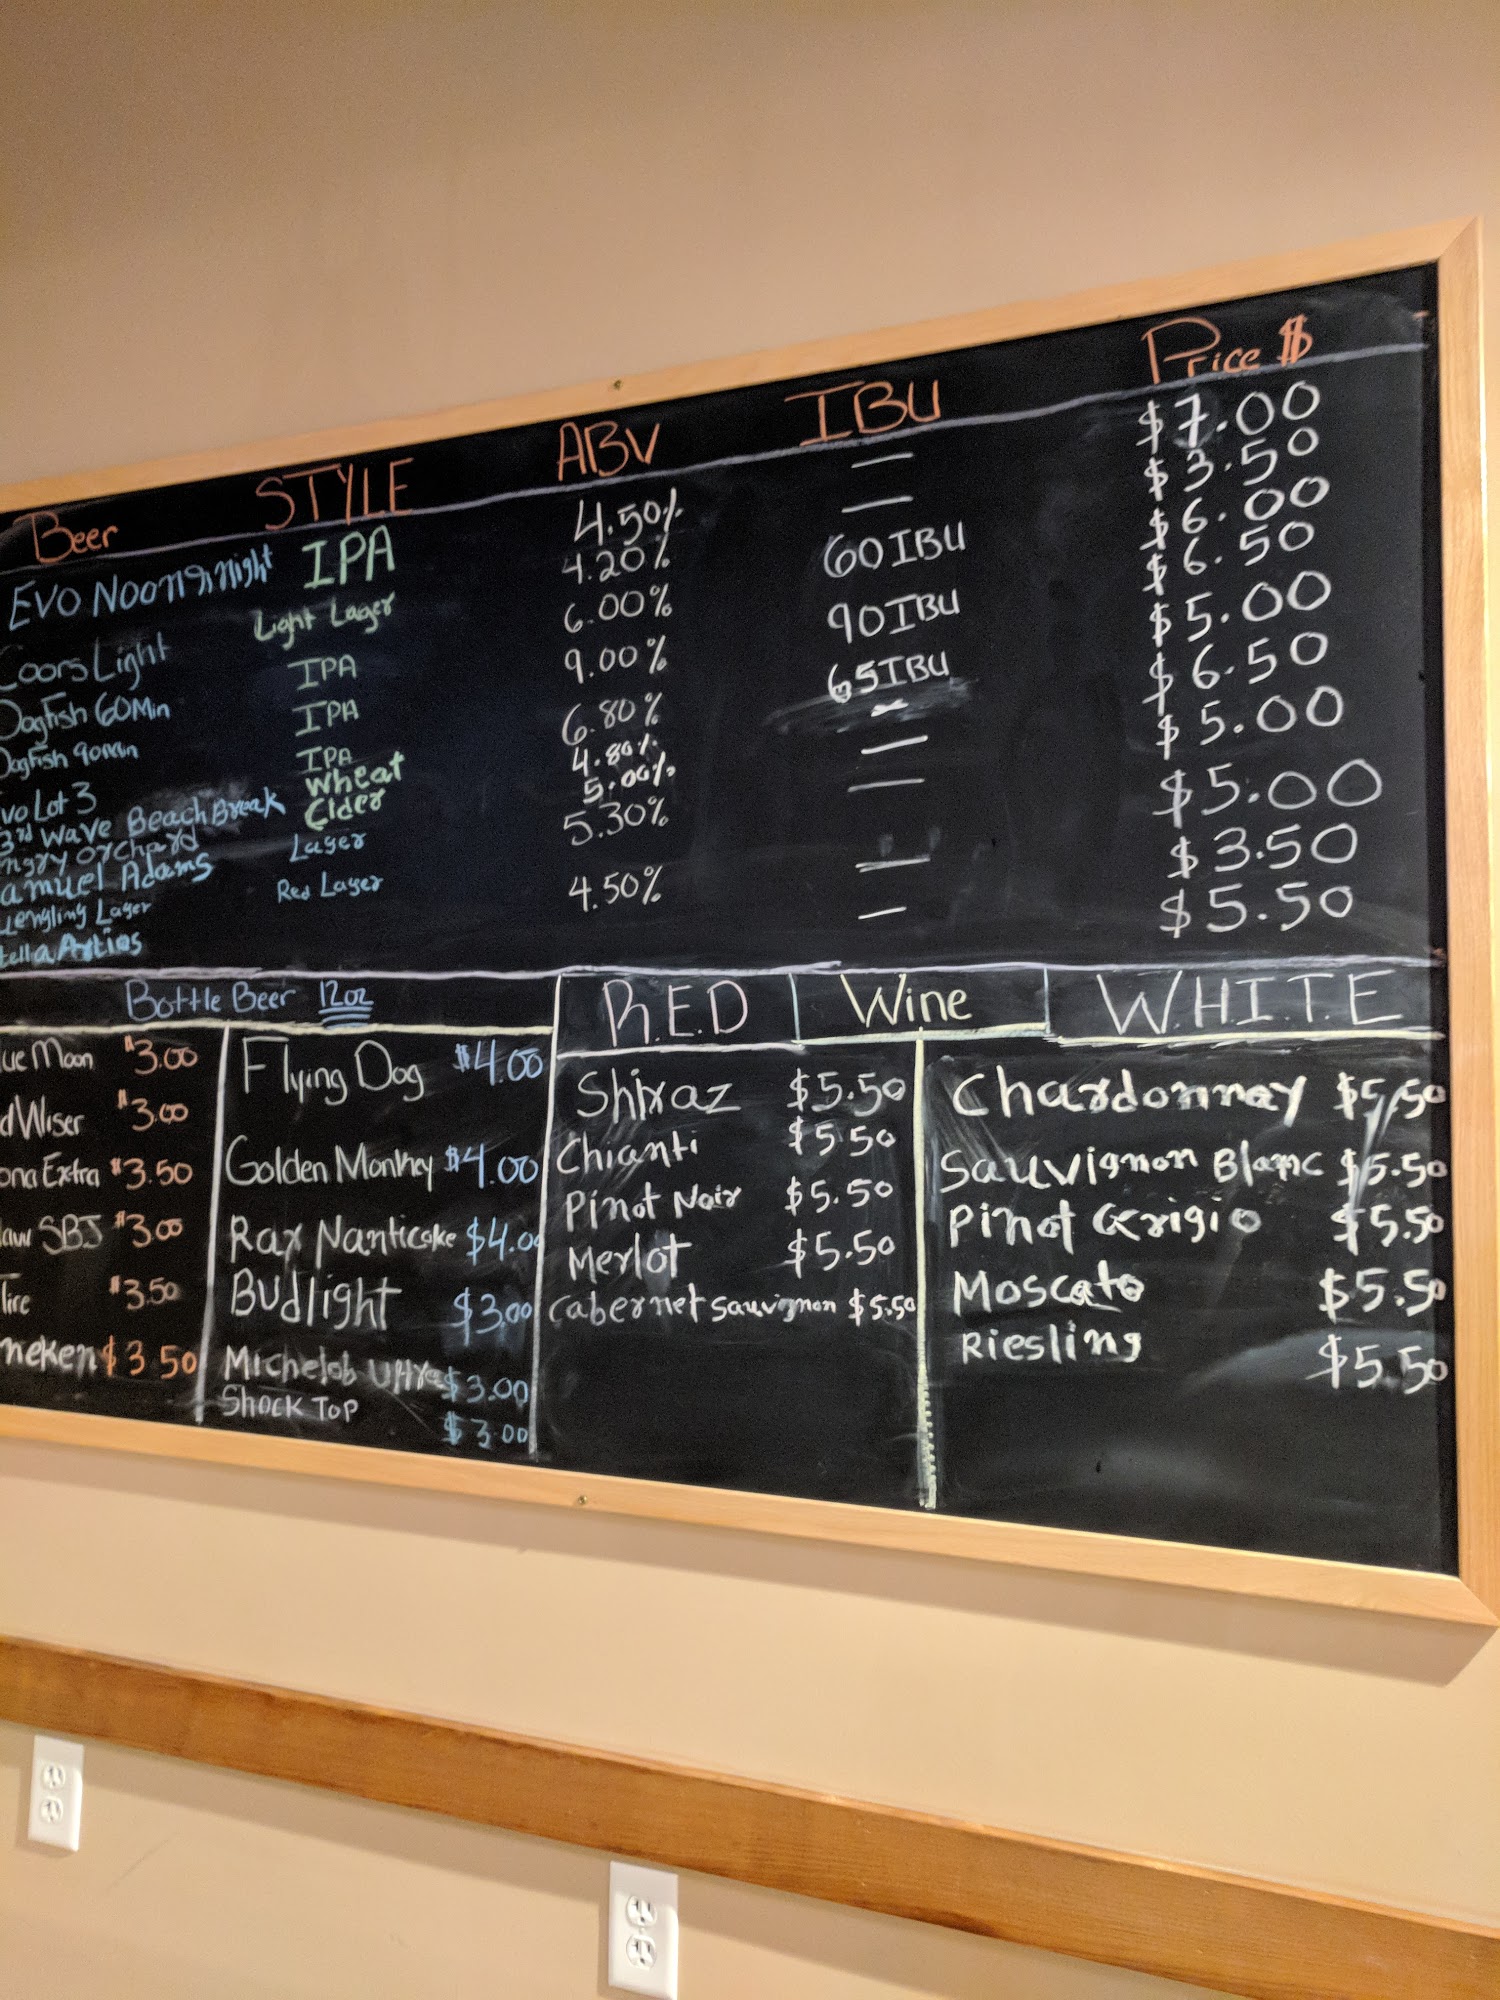 Beer STYLE ABV IBU Price $
EVO Noon IPA 4.50% — $7.00
Coors Light Light Lager 4.20% — $3.50
Dogfish 60Min IPA 6.00% 60IBU $6.00
Dogfish 90Min IPA 9.00% 90IBU $6.50
vo Lot 3 IPA 6.80% 65IBU $5.00
3rd Wave Beach Break Wheat 4.80% — $6.50
ngry orchard Cider 5.00% — $5.00
amuel Adams Lager 5.30% — $5.00
uengling Lager Red Lager 4.50% — $3.50
tella Artios — $5.50
Bottle Beer 12oz
ue Moon $3.00
dWiser $3.00
ona Extra $3.50
aw SBJ $3.00
Tire $3.50
neken $3 50
Flying Dog $4.00
Golden Monkey $4.00
Rax Nanticoke $4.00
Budlight $3.00
Michelob Ultra $3.00
Shock Top $3.00
R.E.D Wine W.H.I.T.E
Shiraz $5.50
Chianti $5.50
Pinot Noir $5.50
Merlot $5.50
Cabernet Sauvignon $5.50
Chardonnay $5.50
Sauvignon Blanc $5.50
Pinot Grigio $5.50
Moscato $5.50
Riesling $5.50